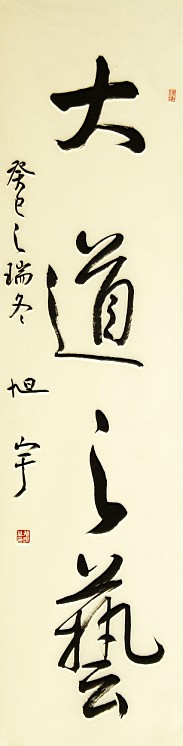 大道之藝
癸巳之瑞冬 旭宇